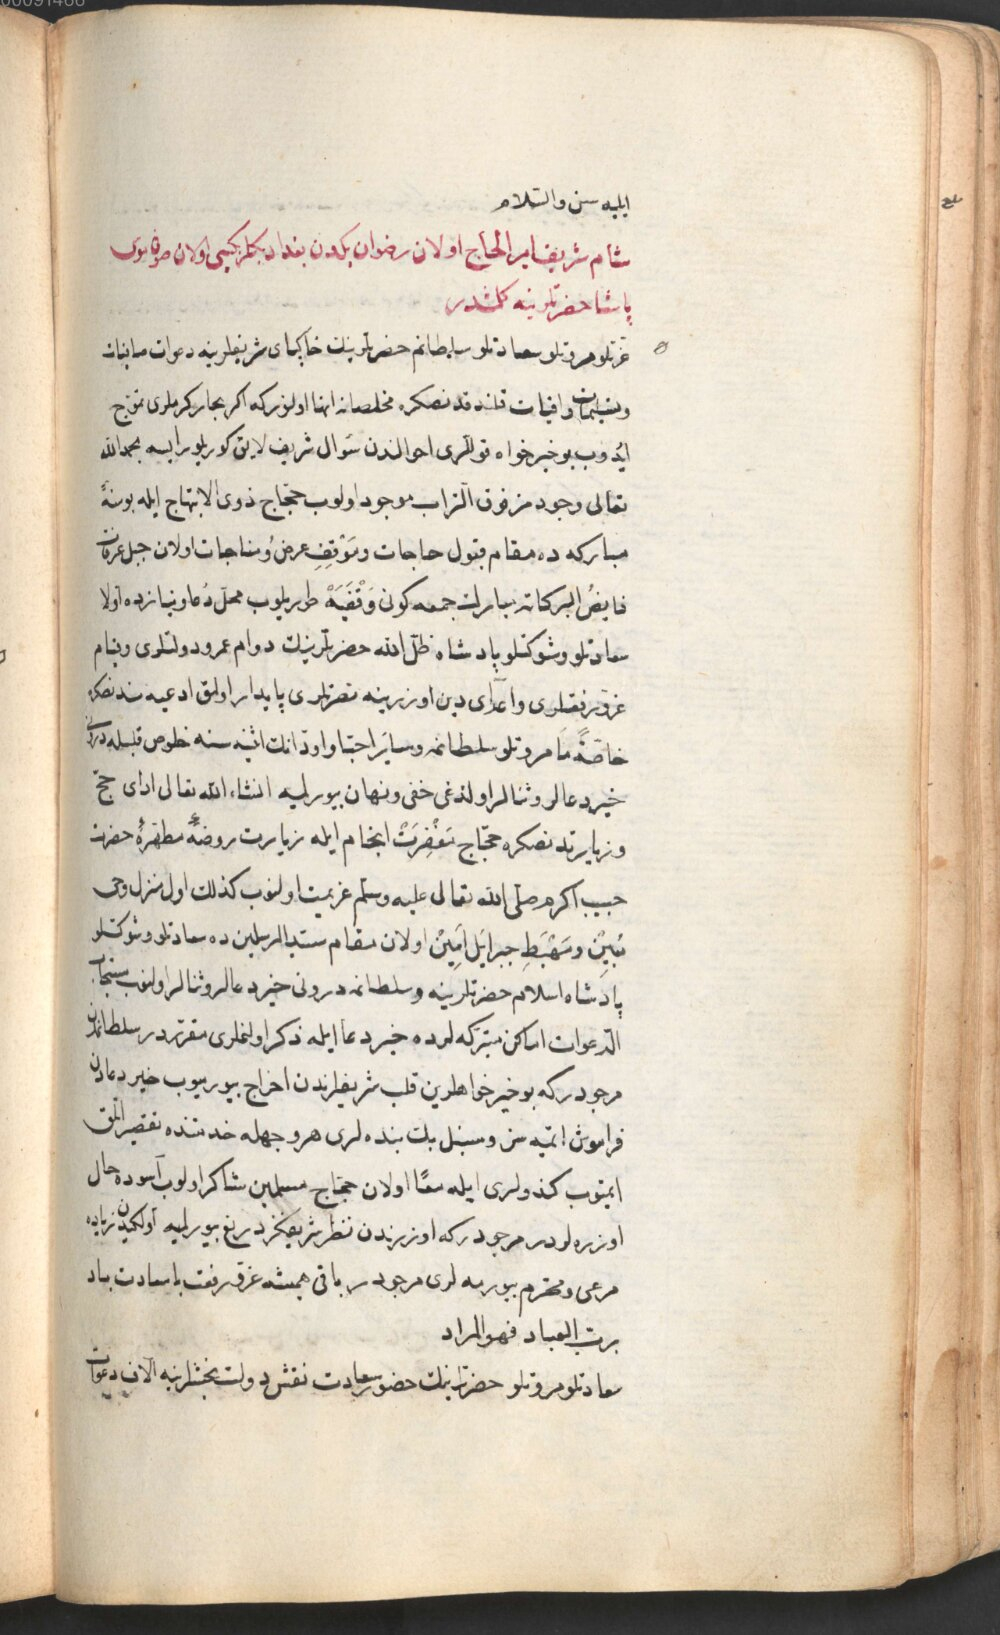 00091468
ایلیه سن والسلام
شام شریف امیر الحاج اولان رضوان بکدن بغداد بکلربکیسی اولان صوفی
پاشا حضرتلرینه کلمشدر
عزتلو مروتلو سعادتلو سلطانم حضرتلرینك خاکپای شریفلرینه دعوات صافیات
وتسلیمات وافیات قلندقدنصکره مخلصانه انها اولنور که اکر بحار کرملری تموج
ایدوب بو خیرخواه قوللری احوالندن سوال شریف لایق کوریلورایسه بحمدالله
تعالی وجودمز فوق التراب موجود اولوب حجاج ذوی الابتهاج ایله بو سنهٔ
مبارکه ده مقام قبول حاجات وموقف عرض ومناجات اولان جبل عرفات
فایض البرکاته مبارك جمعه کونی وقفیه طوریلوب محل دعا ونیازده اولا
سعادتلو وشوکتلو پادشاه ظل الله حضرتلرینك دوام عمر ودولتلری وقیام
عز ورفعتلری واعدای دین اوزرینه نصرتلری پایدار اولمق ادعیه سندنصکره
خاصةً ما مروتلو سلطانمه وسایر احبا واودّانك اثنیه سنه خلوص قلبله درکار
خیر دعالر وثنالر اولندغی خفی ونهان بیورلمیه انشاء الله تعالی ادای حج
وزیارتدنصکره حجاج مغفرت انجام ایله زیارت روضهٔ مطهرهٔ حضرت
حبیب اکرم صلی الله تعالی علیه وسلم عزیمت اولنوب کذلك اول منزل وحی
مبین ومهبط جبرائیل امین اولان مقام سید المرسلین ده سعادتلو وشوکتلو
پادشاه اسلام حضرتلرینه وسلطانمه درونی خیر دعالر وثنالر اولنوب مستجاب
الدعوات اماکن متبرکه لرده خیر دعا ایله ذکر اولنملری مقرر در سلطانمدن
مرجودرکه بو خیرخواهلرین قلب شریفلرندن اخراج بیورمیوب خیر دعادن
فراموش اتمیه سز وسنبل بك بنده لری هر وجهله خدمتنده تقصیر اتمك
ایتیوب کندولری ایله معًا اولان حجاج مسلمین شاکر اولوب آسوده حال
اوزره لردر مرجودر که اوزرندن نظر شریفکز دریغ بیورلمیه اولکیدن زیاده
مرعی ومحترم بیورمه لری مرجودر باقی همیشه عز ورفعت باسعادت باد
برب العباد فهو المراد
سعادتلو مروتلو حضرتلرینك حضور سعادت نقش دولت بخشلرینه الاف دعوات